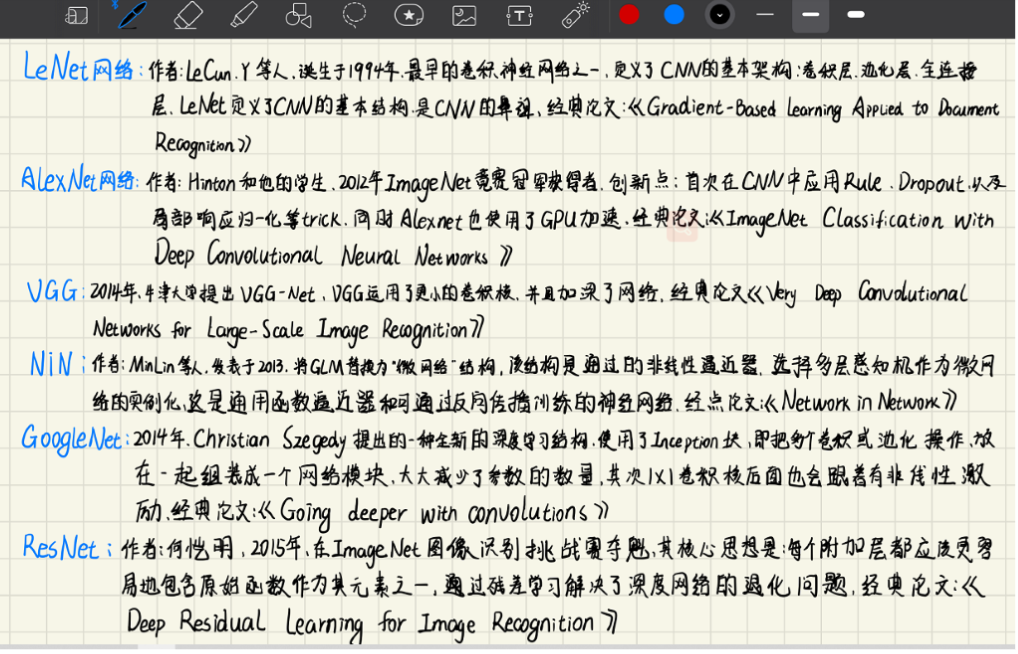 LeNet网络:作者:LeCun.Y等人.诞生于1994年.最早的卷积神经网络之一,定义了CNN的基本架构:卷积层.池化层.全连接
层.LeNet定义了CNN的基本结构.是CNN的鼻祖.经典论文:《Gradient-Based Learning Applied to Document
Recognition》
AlexNet网络:作者:Hinton和他的学生.2012年ImageNet竞赛冠军获得者.创新点:首次在CNN中应用Rule.Dropout.以及
局部响应归一化等trick.同时Alexnet也使用了GPU加速.经典论文:《ImageNet Classification with
Deep Convolutional Neural Networks》
VGG:2014年.牛津大学提出VGG-Net.VGG运用了更小的卷积核.并且加深了网络.经典论文《Very Deep Convolutional
Networks for Large-Scale Image Recognition》
NiN:作者:MinLin等人.发表于2013.将GLM替换为"微网络"结构,该结构是通过的非线性逼近器.选择多层感知机作为微网
络的实例化.这是通用函数逼近器和可通过反向传播训练的神经网络.经点论文:《Network in Network》
GoogleNet:2014年.Christian Szegedy提出的一种全新的深度学习结构.使用了Inception块,即把每个卷积或池化操作.放
在一起组装成一个网络模块.大大减少了参数的数量.其次1X1卷积核后面也会跟着有非线性激
励.经典论文:《Going deeper with convolutions》
ResNet:作者:何恺明.2015年.在ImageNet图像识别挑战赛夺魁.其核心思想是:每个附加层都应该更容
易地包含原始函数作为其元素之一,通过残差学习解决了深度网络的退化问题.经典论文:《
Deep Residual Learning for Image Recognition》